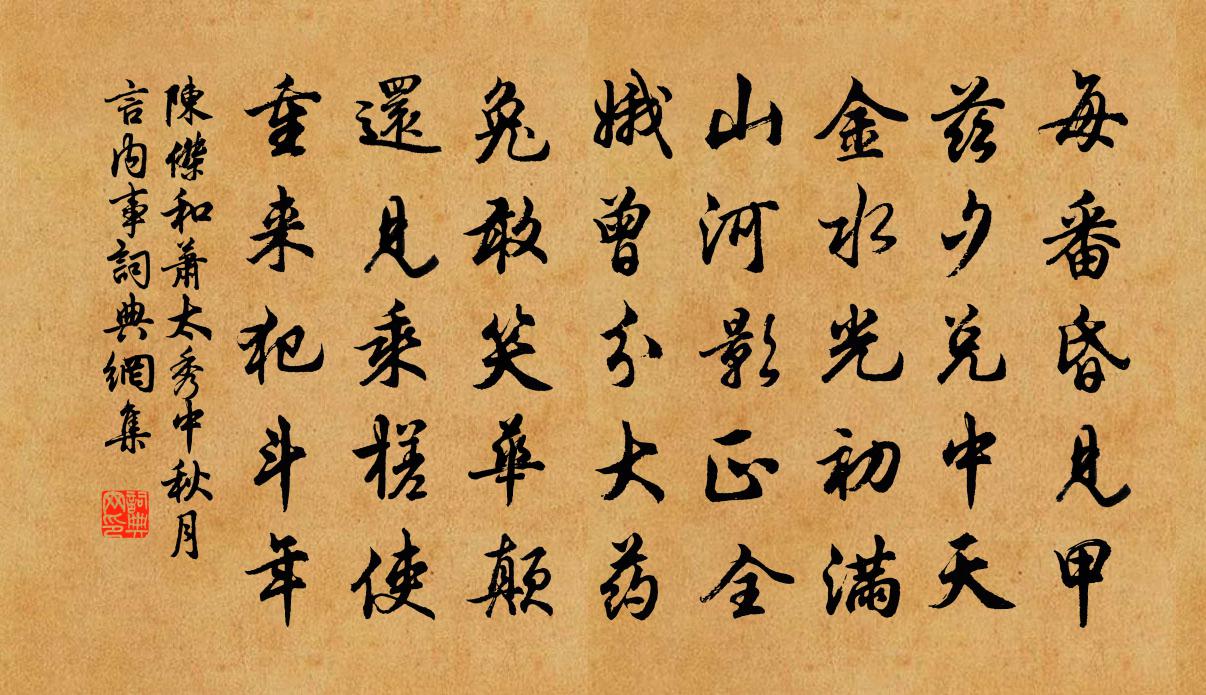 每番昏見甲
茲夕兌中天
金水光初滿
山河影正全
娥曾分大药
兔敢笑華顛
還見乘槎使
重来犯斗年
陳傑和蕭太秀中秋月
言内事詞典網集
詞典網印